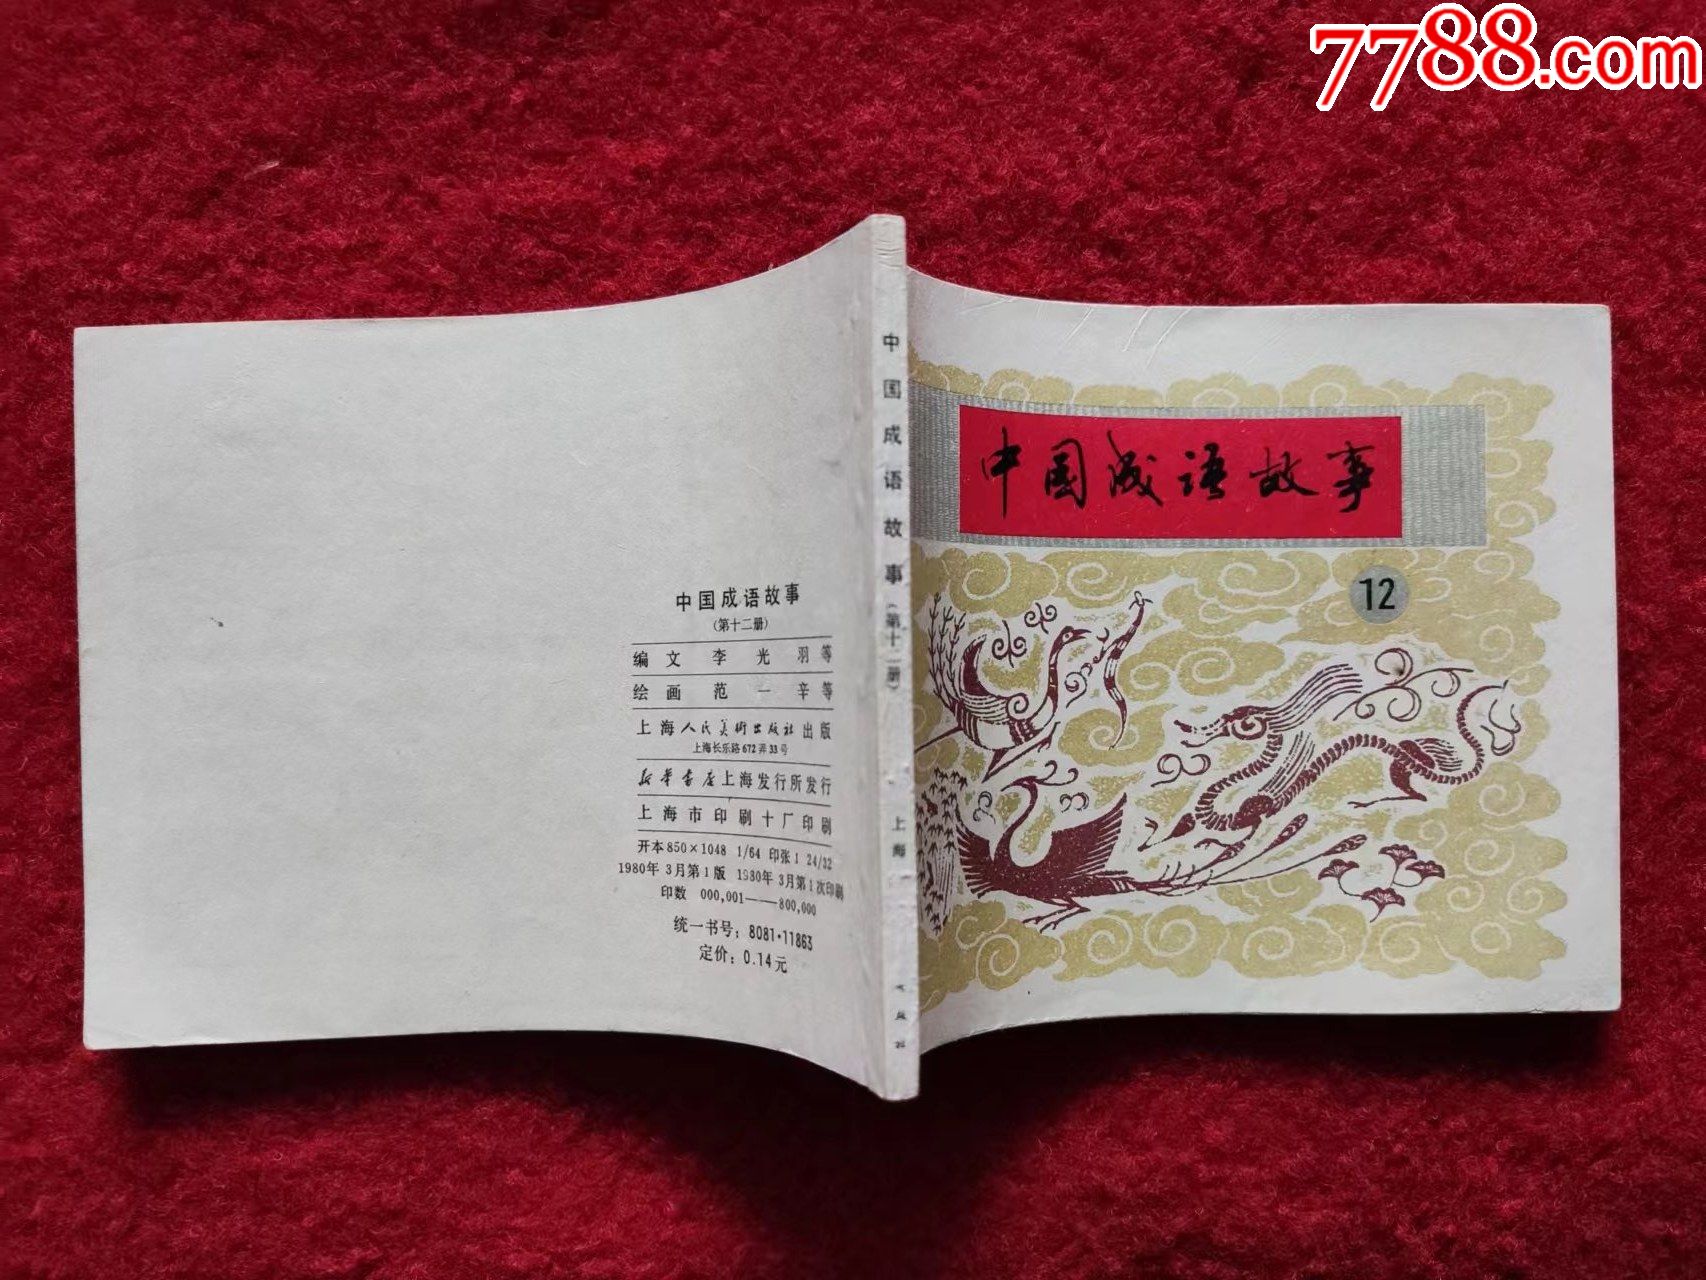 7788.com
中国成语故事
(第十二册)
编文 李光羽等
绘画 范一辛等
上海人民美術出版社出版
上海长乐路672弄33号
新华书店上海发行所发行
上海市印刷十厂印刷
开本850×1048 1/64 印张1 24/32
1980年3月第1版 1980年3月第1次印刷
印数 000,001——800,000
统一书号：8081·11863
定价：0.14元
中国成语故事(第十二册)
上海
中国成语故事
12